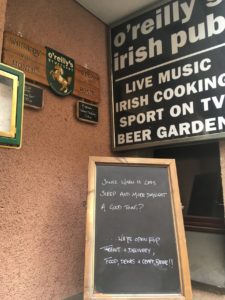 o'reilly's
irish pub
LIVE MUSIC
IRISH COOKING
SPORT ON TV
BEER GARDEN
o'reilly's
SINCE WHEN IS LESS
SLEEP AND MORE DAYLIGHT
A GOOD THING?
WE'RE OPEN FOR
TAKEOUT & DELIVERY
FOOD, DRINKS & CRAFT BEER!!